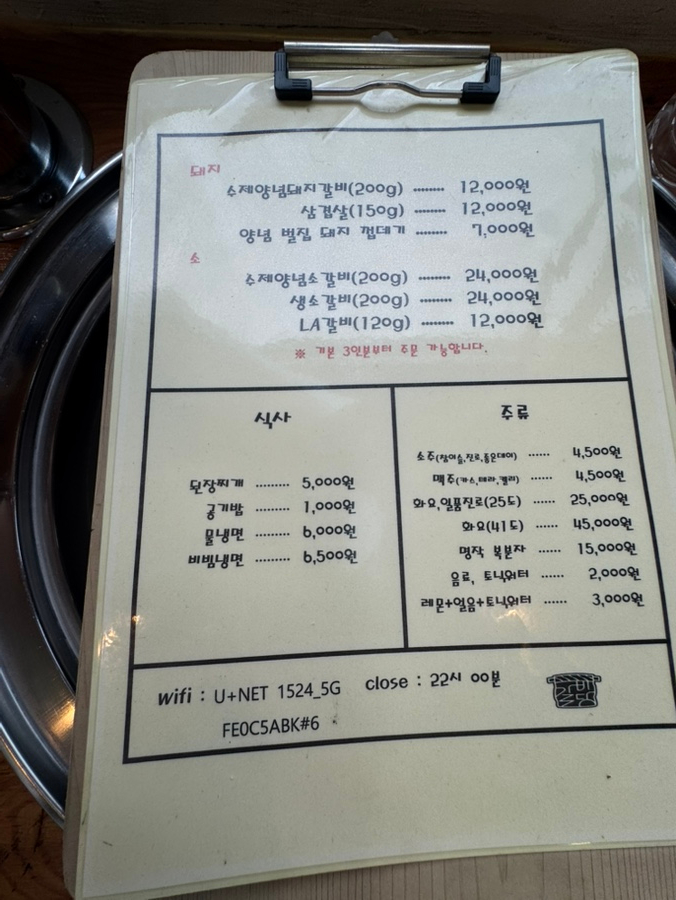 돼지
수제양념돼지갈비(200g) ········ 12,000원
삼겹살(150g) ········ 12,000원
양념 벌집 돼지 껍데기 ········ 7,000원
소
수제양념소갈비(200g) ········ 24,000원
생소갈비(200g) ········ 24,000원
LA갈비(120g) ········ 12,000원
※ 기본 3인분부터 주문 가능합니다.
식사
된장찌개 ········ 5,000원
공기밥 ········ 1,000원
물냉면 ········ 6,000원
비빔냉면 ········ 6,500원
주류
소주(참이슬,진로,좋은데이) ······ 4,500원
맥주(카스,테라,켈리) ······ 4,500원
화요,일품진로(25도) ······ 25,000원
화요(41도) ······ 45,000원
명작 복분자 ······ 15,000원
음료, 토닉워터 ······ 2,000원
레몬+얼음+토닉워터 ······ 3,000원
wifi : U+NET 1524_5G
FE0C5ABK#6
close : 22시 00분